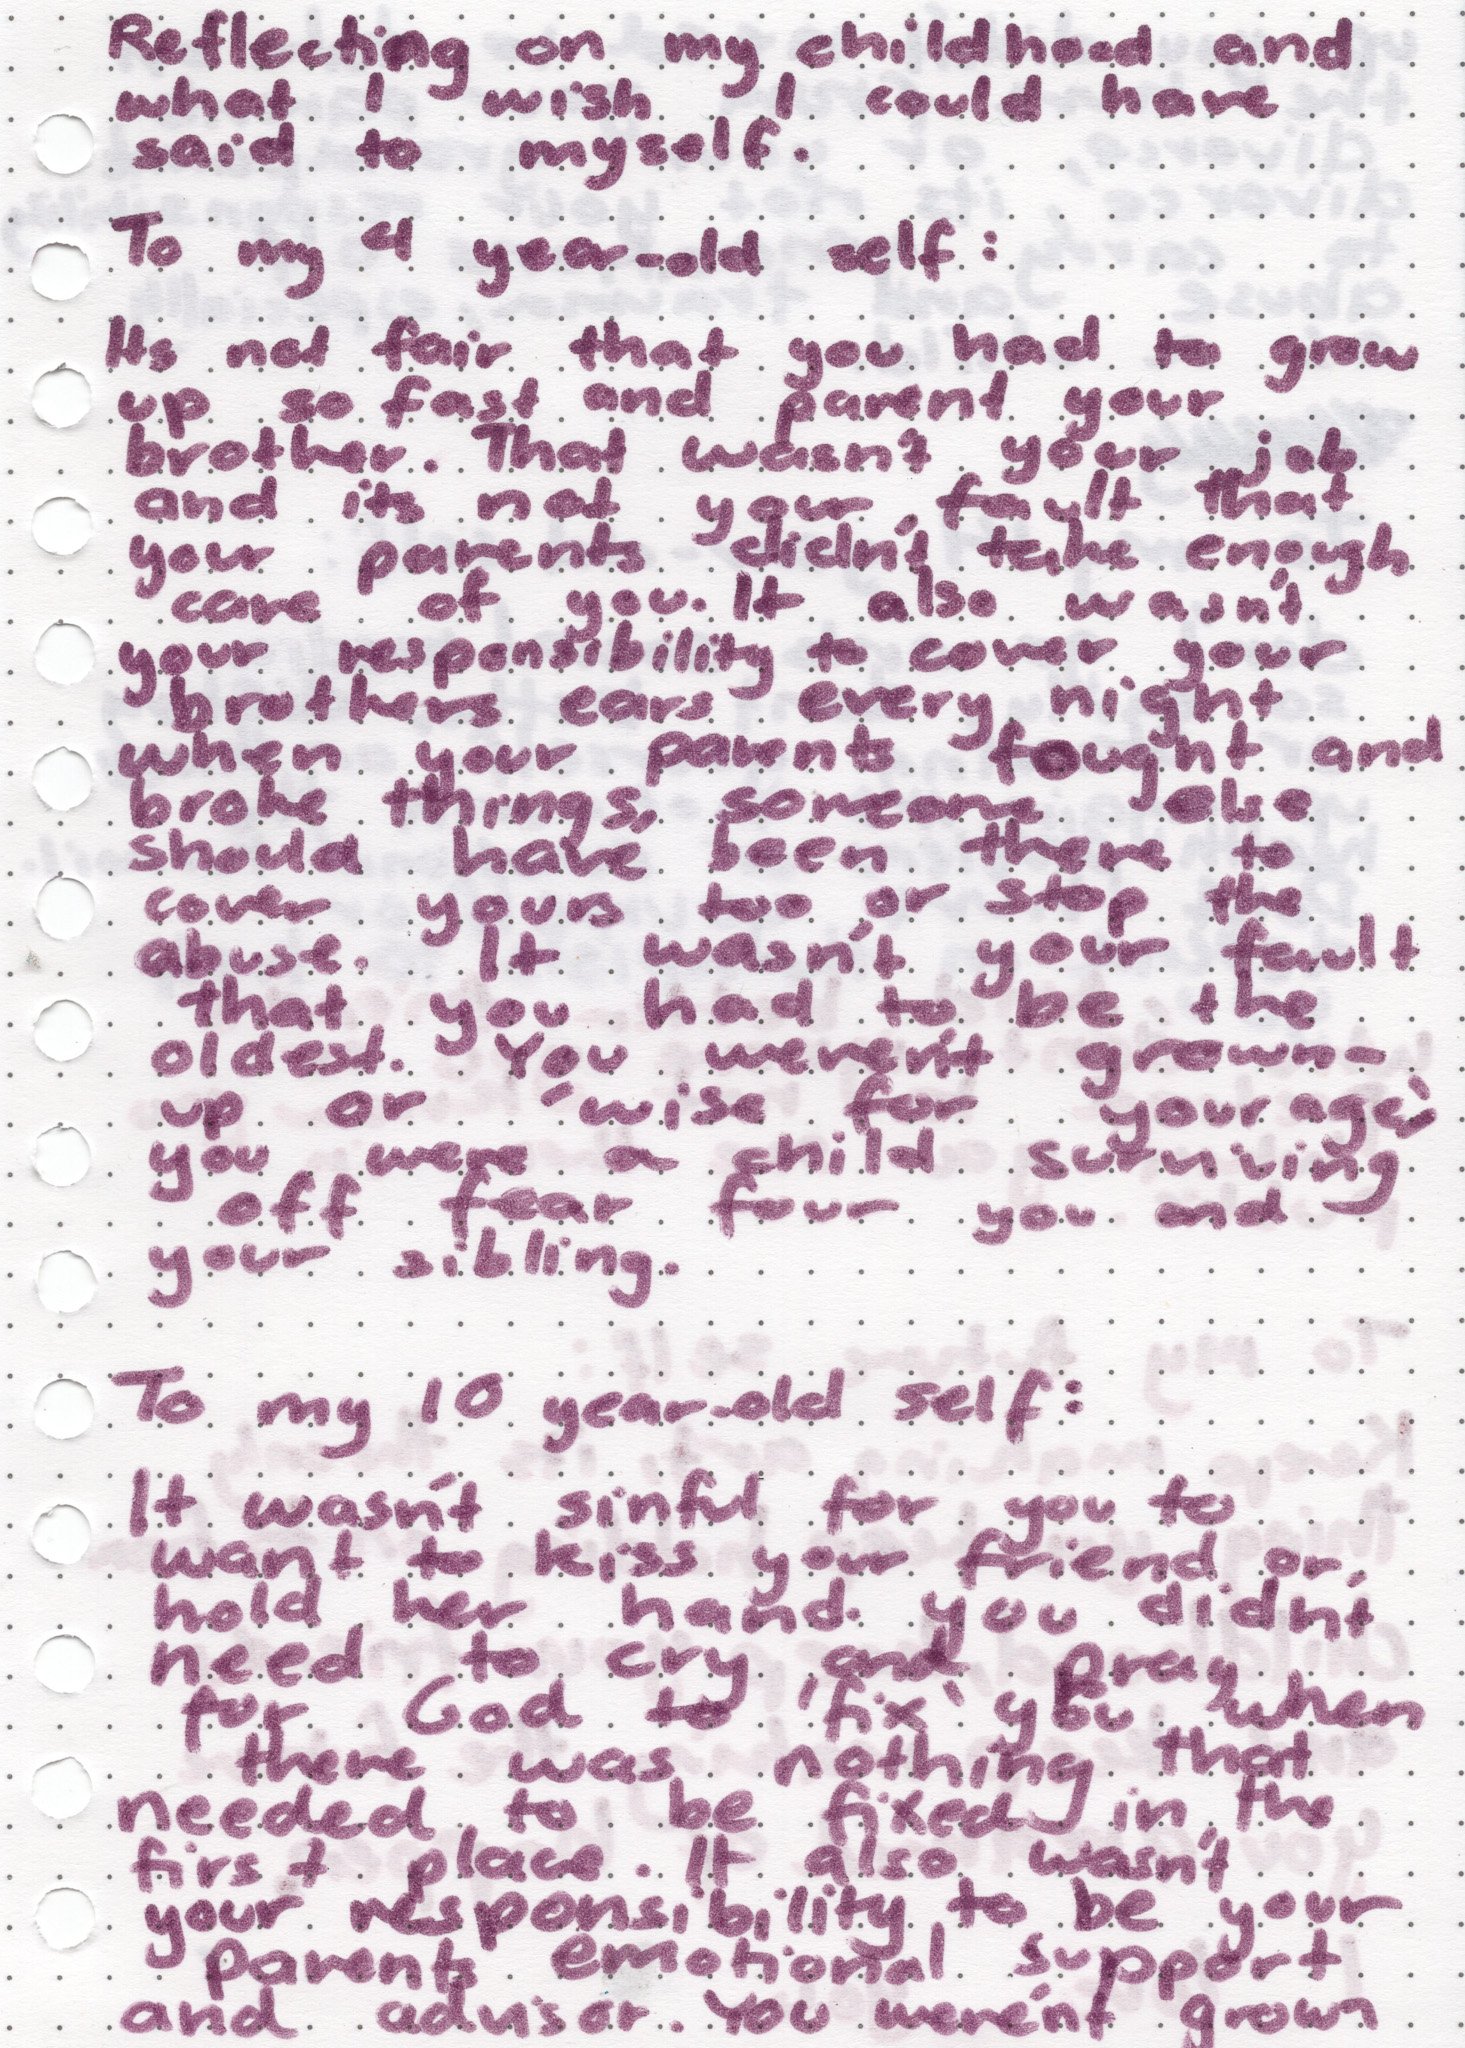 Reflecting on my childhood and
what I wish I could have
said to myself.
To my 4 year-old self:
Its not fair that you had to grow
up so fast and parent your
brother. That wasn't your job
and its not your fault that
your parents didn't take enough
care of you. It also wasn't
your responsibility to cover your
brothers ears every night
when your parents fought and
broke things, someone else
should have been there to
cover yours too or stop the
abuse. It wasn't your fault
that you had to be the
oldest. You weren't grown-
up or "wise for your age",
you were a child surviving
off fear four you and
your sibling.
To my 10 year-old self:
It wasn't sinful for you to
want to kiss your friend or
hold her hand. you didn't
need to cry and pray
for God to 'fix' you when
there was nothing that
needed to be fixed in the
first place. It also wasn't
your responsibility to be your
parents emotional support
and advisor. You weren't grown